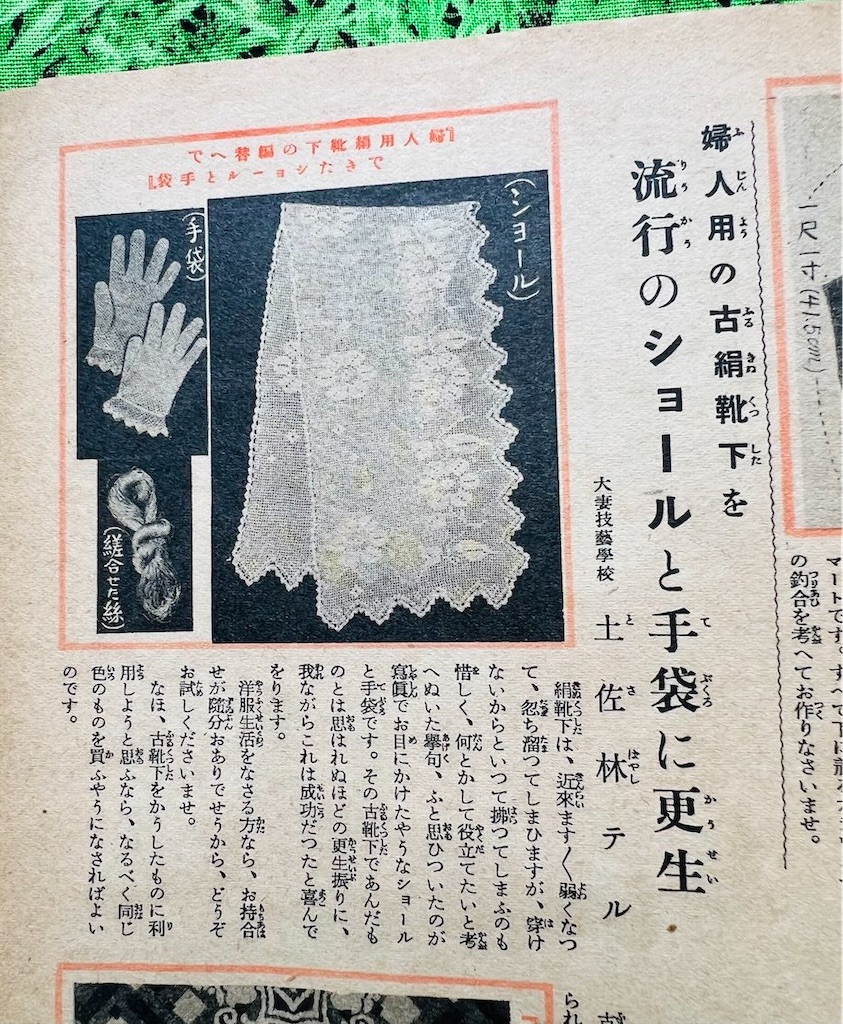 一尺一寸(41.5cm)
マートです。すべて下に
の釣合を考へてお作りなさいませ。
婦人用の古絹靴下を
流行のショールと手袋に更生
大妻技藝學校 土佐林テル
『婦人用絹靴下の編替へで
できたショールと手袋』
(ショール)
(手袋)
(縒合せた絲)
絹靴下は、近來ます〱弱くなつ
て、忽ち溜つてしまひますが、穿け
ないからといつて抛つてしまふのも
惜しく、何とかして役立てたいと考
へぬいた擧句、ふと思ひついたのが
寫眞でお目にかけたやうなショール
と手袋です。その古靴下であんだも
のとは思はれぬほどの更生振りに、
我ながらこれは成功だつたと喜んで
をります。
洋服生活をなさる方なら、お持合
せが隨分おありでせうから、どうぞ
お試しくださいませ。
なほ、古靴下をかうしたものに利
用しようと思ふなら、なるべく同じ
色のものを買ふやうになさればよい
のです。
古
られ